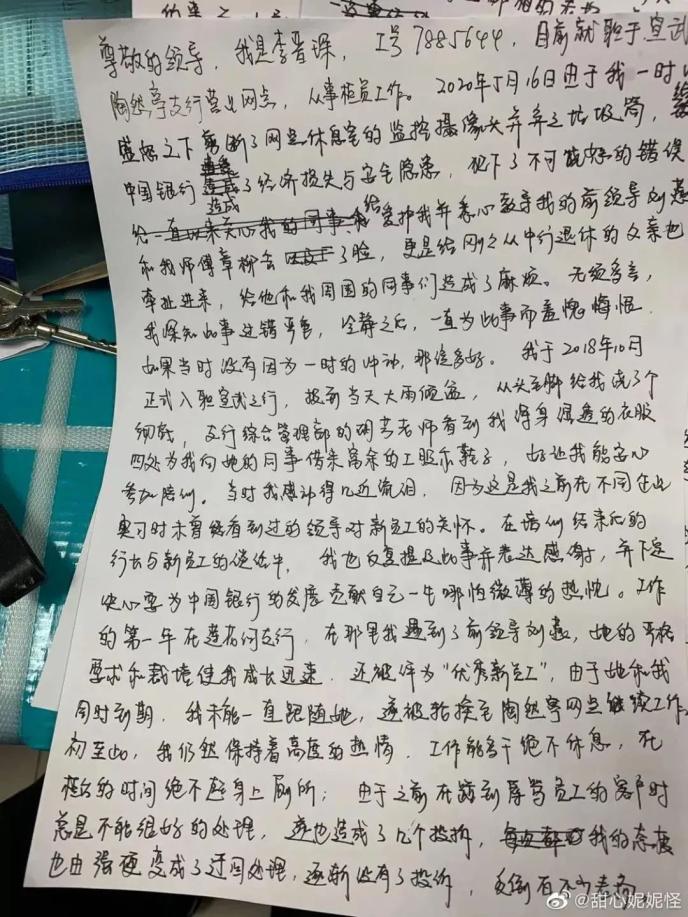 尊敬的领导，我是李晋琛，工号7885644，目前就职于宣武
陶然亭支行营业网点，从事柜员工作。2020年5月16日由于我一时
盛怒之下剪断了网点休息室的监控摄像头并弃之垃圾筒，给
中国银行造成了经济损失与安全隐患，犯下了不可饶恕的错误
给爱护我并悉心教导我的前领导刘燕
和我师傅章柳 了脸，更是给刚刚从中行退休的父亲也
牵扯进来，给他和我周围的同事们造成了麻烦。无须多言，
我深知此事过错严重，冷静之后，一直为此事而羞愧悔恨
如果当时没有因为一时的冲动，那该多好。我于2018年10月
正式入职宣武支行，报到当天大雨倾盆，从头至脚给我浇了个
彻底，支行综合管理部的 老师看到我浑身湿透的衣服
四处为我向她的同事借来富余的工服和鞋子，好让我能安心
参加培训。当时我感动得几近流泪，因为这是我之前在不同企业
实习时未曾经看到过的领导对新员工的关怀。在培训结束后的
行长与新员工的座谈中，我也反复提及此事并表达感谢，并下定
决心要为中国银行的发展贡献自己一生哪怕微薄的热忱。工作
的第一年在莲花河支行，在那里我遇到了前领导刘燕，她的严格
要求和栽培使我成长迅速，还被评为“优秀新员工”，由于她和我
同时到期，我未能一直跟随她，遂被轮换至陶然亭网点继续工作。
初至此，我仍然保持着高度的热情，工作能多干绝不休息，在
柜台的时间绝不起身上厕所；由于之前在遇到辱骂员工的客户时
总是不能很好的处理，遂也造成了几个投诉，我的态度
也由强硬变成了迂回处理，逐渐没有了投诉，反倒有不少表扬
@甜心妮妮怪